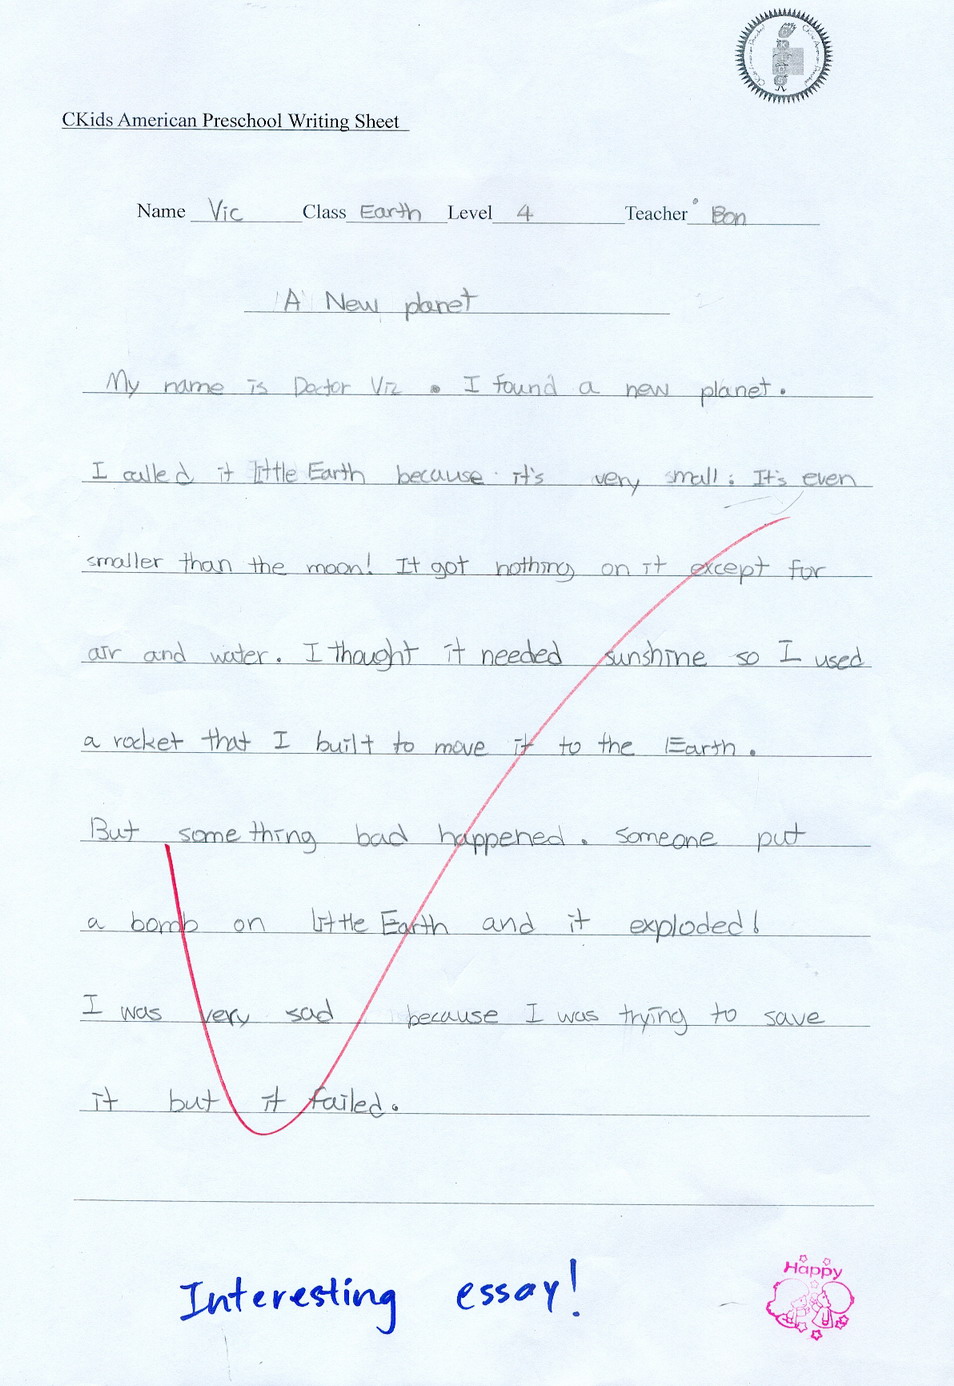 CKids American Preschool Writing Sheet
Name Vic Class Earth Level 4 Teacher Bon
A New planet
My name is Doctor Vic. I found a new planet.
I called it little Earth because it's very small. It's even
smaller than the moon! It got nothing on it except for
air and water. I thought it needed sunshine so I used
a rocket that I built to move it to the Earth.
But something bad happened. someone put
a bomb on little Earth and it exploded!
I was very sad because I was trying to save
it but it failed.
Interesting essay!
Happy